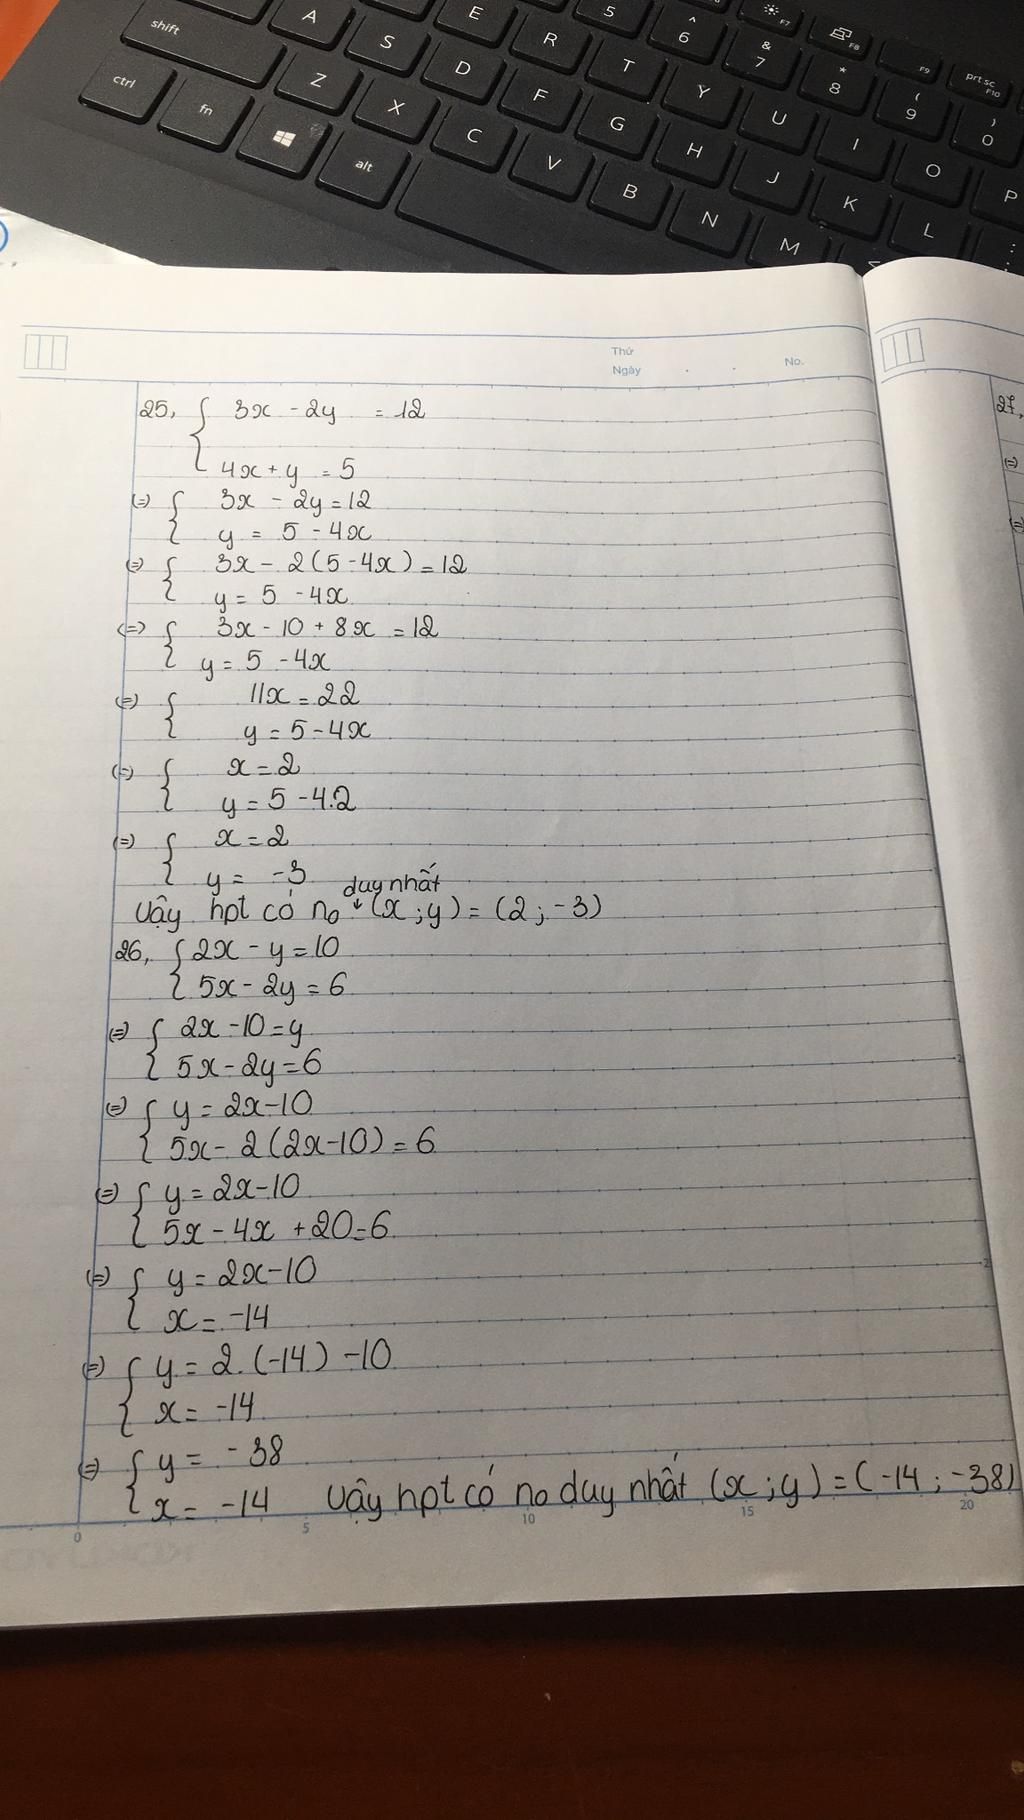 shift A S E R 5 ^ 6 F7 F8 F9 prt sc F10
ctrl fn Z X D F T & 7 * 8 ( 9 ) 0
alt C V G Y U I O P
B H J K L : ;
N M <
Thứ
Ngày No.
25, { 3x - 2y = 12
4x + y = 5
(=) { 3x - 2y = 12
y = 5 - 4x
(=) { 3x - 2(5 - 4x) = 12
y = 5 - 4x
(=) { 3x - 10 + 8x = 12
y = 5 - 4x
(=) { 11x = 22
y = 5 - 4x
(=) { x = 2
y = 5 - 4.2
(=) { x = 2
y = -3
duy nhất
Vậy hpt có no ↓ (x ; y) = (2 ; -3)
26, { 2x - y = 10
5x - 2y = 6
(=) { 2x - 10 = y
5x - 2y = 6
(=) { y = 2x - 10
5x - 2(2x - 10) = 6
(=) { y = 2x - 10
5x - 4x + 20 = 6
(=) { y = 2x - 10
x = -14
(=) { y = 2. (-14) - 10
x = -14
(=) { y = -38
x = -14 Vậy hpt có no duy nhất (x ; y) = (-14 ; -38)
0 5 10 15 20
27,
(=)
(=)